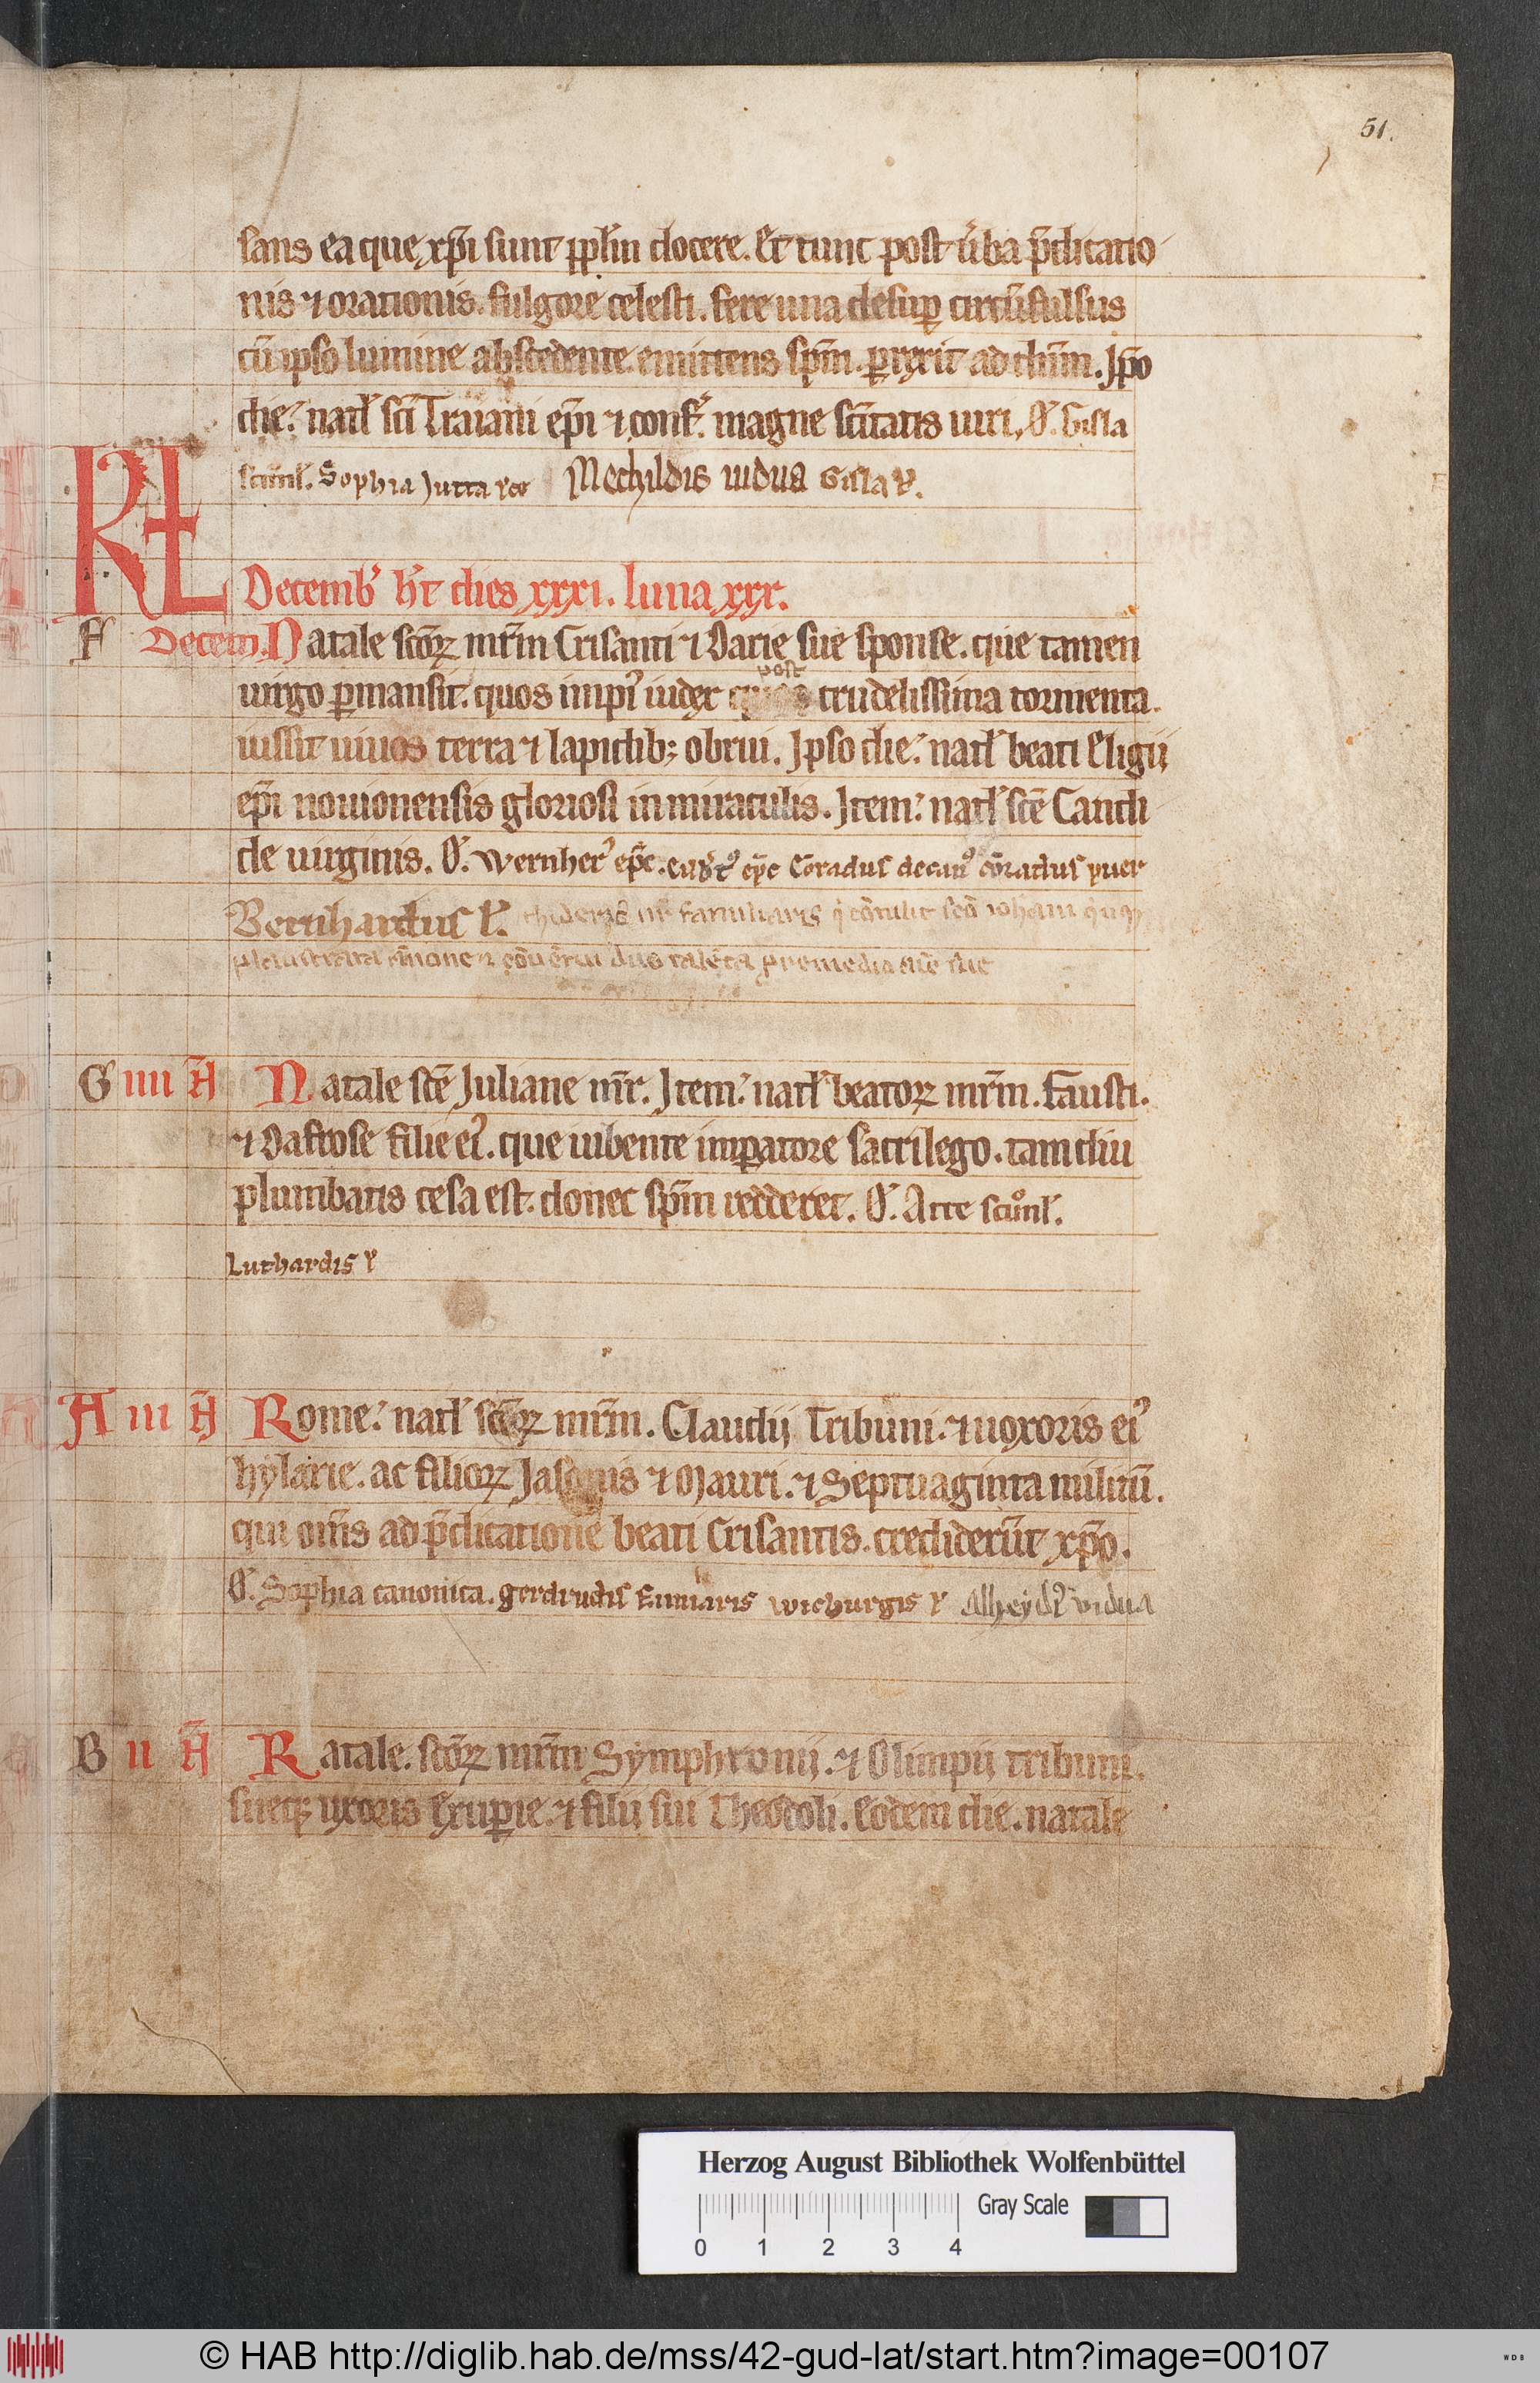 51.
sans ea que xp̄i sunt pp̄lm docere. Et tunc post ūba p̄dicatio
nis ⁊ orationis. fulgore celesti. fere una desuꝑ circūfulsus
cū ipso lumine abscedente. emittens sp̄m. ꝑrexit ad dn̄m. Ip̄o
die. natł sc̄i Traiani ep̄i ⁊ conf. magne sc̄itatis uiri. O. Gisla
Sophia Jutta Mechildis uidua Gisla
KL
Decemb' h't dies xxxi. luna xxx.
F Decem. Natale sc̄oꝝ mr̄m Crisanti ⁊ Darie sue sponse. que tamen
post
uirgo ꝑmansit. quos impi' iudex quos crudelissima tormenta.
iussit uiuos terra ⁊ lapidib; obrui. Ipso die. natł beati Eligii
ep̄i nouionensis gloriosi in miraculis. Item. natł sc̄e Candi
de uirginis. O. Wernher' ep̄c. ep̄c Cōradus decan' cōradus puer
Bernhardus familiaris
G iiii N̄ Natale sc̄e Juliane mr̄. Item. natł beatoꝝ mr̄m. Fausti.
⁊ Dafrose filie ei'. que iubente imꝑatore sacrilego. tam diu
plumbatis cesa est. donec sp̄m redderet. O. Atte
Luthardis
A iii N̄ Rome. natł sc̄oꝝ mr̄m. Claudij Tribuni. ⁊ uxoris ei'
hylarie. ac filioꝝ Jasonis ⁊ Mauri. ⁊ Septuaginta militū.
qui om̄s ad p̄dicationē beati Crisantis. crediderūt xp̄o.
O. Sophia canonica. gerdrudis wicburgis Alheyd' vidua
B ii N̄ Ratale. sc̄oꝝ mr̄m Symphronij. ⁊ Olimpij tribuni.
suetꝫ uxoris Exuꝑie. ⁊ filii sui Theodoli. Eodem die. natale
Herzog August Bibliothek Wolfenbüttel
Gray Scale
0 1 2 3 4
© HAB http://diglib.hab.de/mss/42-gud-lat/start.htm?image=00107
WDB